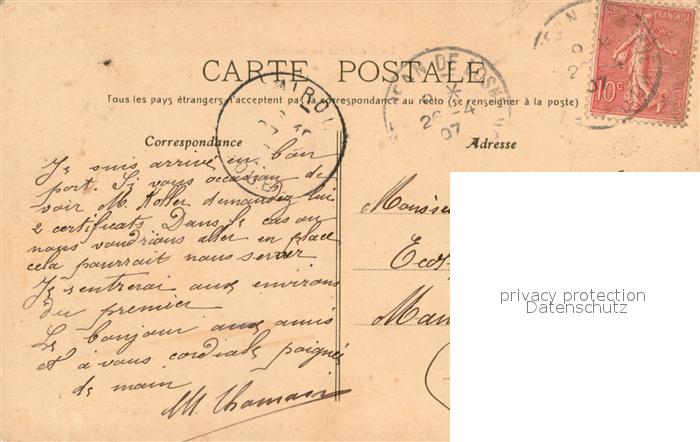 CARTE POSTALE
Tous les pays étrangers n'acceptent pas la correspondance au recto (se renseigner à la poste)
Correspondance
Adresse
REPUBLIQUE FRANÇAISE
10 c
26 -4
07
Je suis arrivé en bon
port. Si vous occasion de
voir M. Koller demandez lui
2 certificats Dans le cas ou
nous voudrions aller en place
cela pourrait nous servir
Je rentrerai aux environs
du premier
Le bonjour aux amis
et à vous cordiale poignée
de main
M. Thomain
Monsie
Eco
Man
privacy protection
Datenschutz